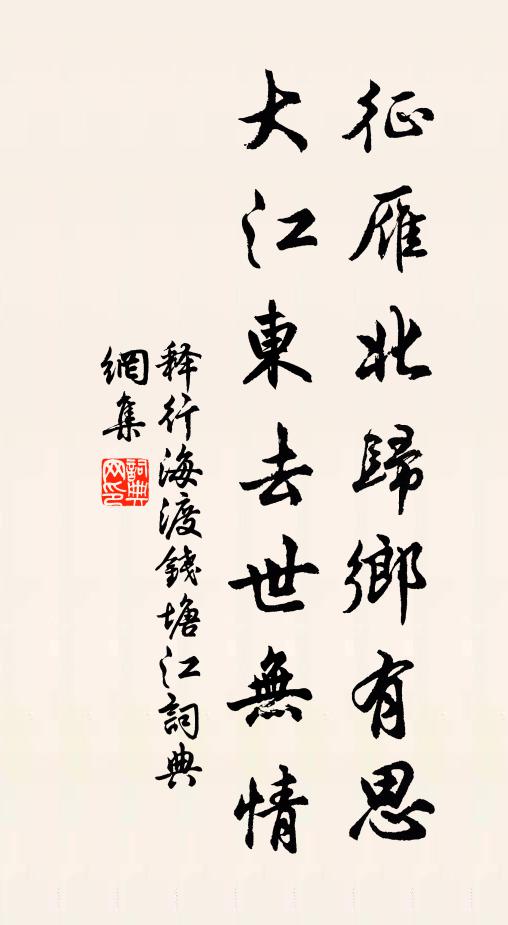 征雁北歸鄉有思
大江東去世無情
释行海渡錢塘江詞典
網集
詞典
网印